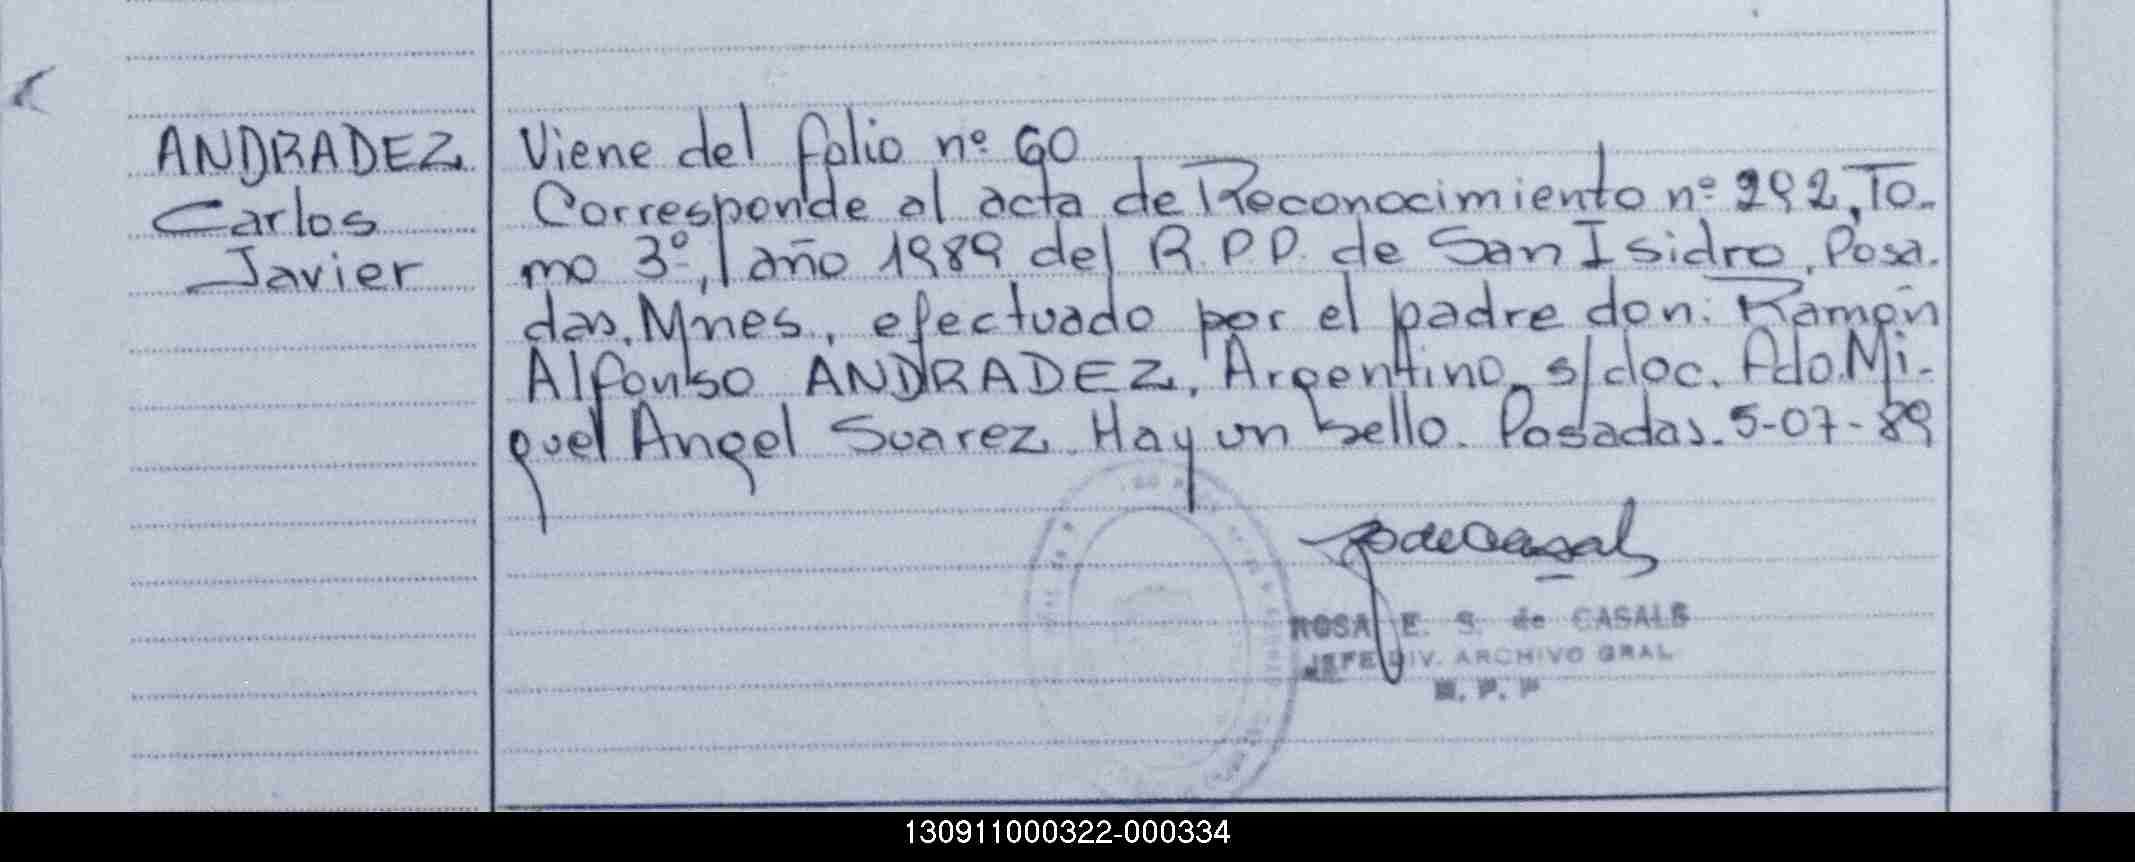 ANDRADEZ
Carlos
Javier
Viene del folio nº 60
Corresponde al acta de Reconocimiento nº 292, To-
mo 3º, año 1989 del R.P.P. de San Isidro, Posa-
das, Mnes, efectuado por el padre don: Ramón
Alfonso ANDRADEZ, Argentino, s/doc. Fdo. Mi-
guel Angel Suarez. Hay un sello. Posadas. 5-07-89
ROSA E. S. de CASALS
JEFE DIV. ARCHIVO GRAL
R. P. P
130911000322-000334